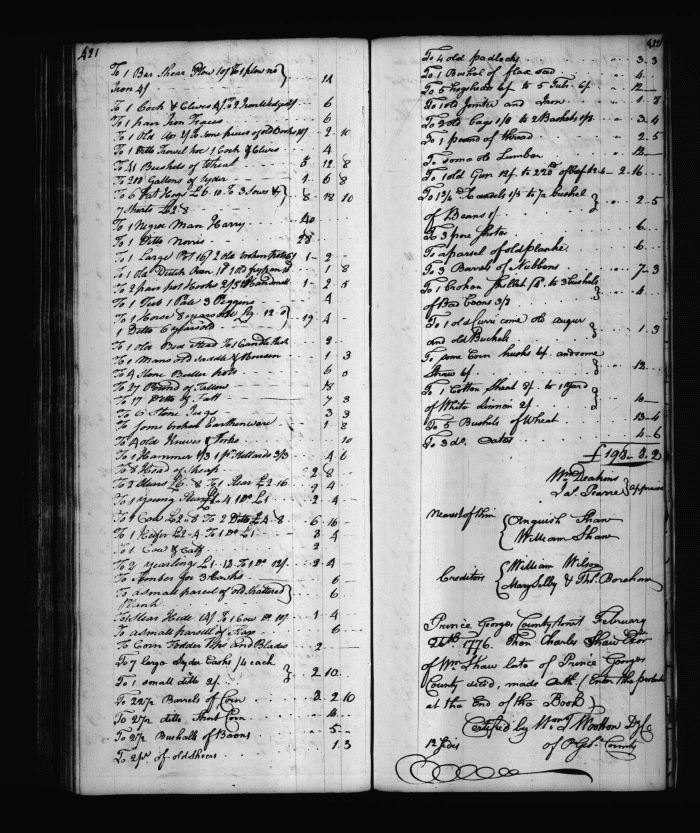 421
To 1 Bar Shear Plow 10/ To 1 plow no
Iron 4/ 14
To 1 Cock & Clives 4/ To 2 Iron Wedges 2/ 6
To 1 pair Iron Traces 6
To 1 Old Ax 2/ To some pieces of old Books 10/ 2 10
To 1 Ditto Trowil hoe 1 Cock & Clives 4
To 41 Bushels of Wheat 5 12 8
Gallons of Syder 1 6 8
To 6 Fat Hogs £6.10 To 3 Sows &
7 Shoats £2.8 8 18 10
To 1 Negroe Man Harry 40
To 1 Ditto Norris 28
To 1 Large Pot 16/ 2 old broken pots 1 2
To 1 old Dutch Oven 1 old frypan 1 8
To 2 pair pot Hooks 2/5 1 2 5
To 1 Tub 1 Pale 3 Piggins 4
To 1 Horse 8 years old £9.12.0
1 Ditto 6 years old 19 4
To 1 Old Bed Stead To 1 Candle Stick 2
To 1 Mans old Saddle & Housen 1 3
To 9 Stone Butter pots 6
To 27 Pound of Tallow 18
To 17 Ditto of Fatt 7 3
To 6 Stone Jugs 3 3
To Some broken Earthenware 1 8
To 4 old Knives & forks 10
To 1 Hammer 1/3 3/3 4 6
To 8 Head of Sheap 2 8
To 2 Stears £6.8 To 1 Stear £2.16 9 4
To 1 Young Stear 2 4
To 2 Cow £2.8 To 2 Ditto £4.8 6 16
To 1 Heifer £2.4 To 1 Do £1 3 4
To 1 Cow & Calf 2
To 2 yearlings £1.12 To 1 Do 12/ 2 4
To Timber for 3 Casks 6
To a small parcel of old Shattered
Plank 6
To 1 Stear Hide 14/ To 1 Cow Do 10/ 1 4
To a small parsell of Flax 6
To Corn Fodder Tops And Blades 2
To 7 large Syder Casks /4 each
To 1 small ditto 2/ 2 10
To 22 1/2 Barrels of Corn 2 10
To 2 1/2 ditto Short Corn
To 2 1/2 Bushells of Baens 5
To 2 pr of old Shears 1 3
422
To 4 old padlocks 3 3
To 1 Bushel of flax seed 4
To 5 hogsheads 6/ to 5 Tubs 6/ 12
To 1 old Jointer and Iron 1 8
To 2 old bags 1/8 to 2 Baskets 3 4
To 1 pound of thread 2 5
To some old Lumber 12
To 1 old Gun 12/ 2 16
bushel
of Beans 1/ 2 5
To 3 6
To a parsel of old planke 6
To 3 Barrels of Nubbons 7 3
To 1 broken Skillet to 3 bushels
of Bad Coons 3/2 4
To 1 old Curri come old augur
and old Buckels 1 3
To some Corn husks 6/ and some
Straw 6/ 12
To 1 Cotton Sheat 8/ to 1 Yard
of White Linnon 2/ 10
To 5 Bushels of Wheat 13 4
To 3 do Oats 4 6
£195 3 2
Wm Deakins
Jas Pearre } appraisers
Nearest of Kin { Anguish Shaw
William Shaw
Creditors { William Wilson
Mary Selby & Thos Boreham
Prince Georges County Court February
26th 1776. Then Charles Shaw Exor
of Wm Shaw late of Prince Georges
County decd, made oath (Enter the probate
at the End of the Book)
Certified by Wm T Wootton Regr
12 Sides of P Geos County